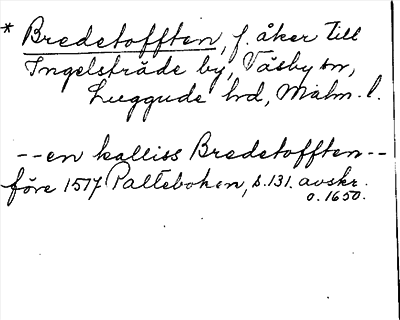 * Bredetofften, f. åker till
Ingelstråde by, Väsby sn,
Luggude hd, Malm. l.
--en kalliss Bredetofften--
före 1517 Palteboken, s. 131. avskr.
o. 1650.